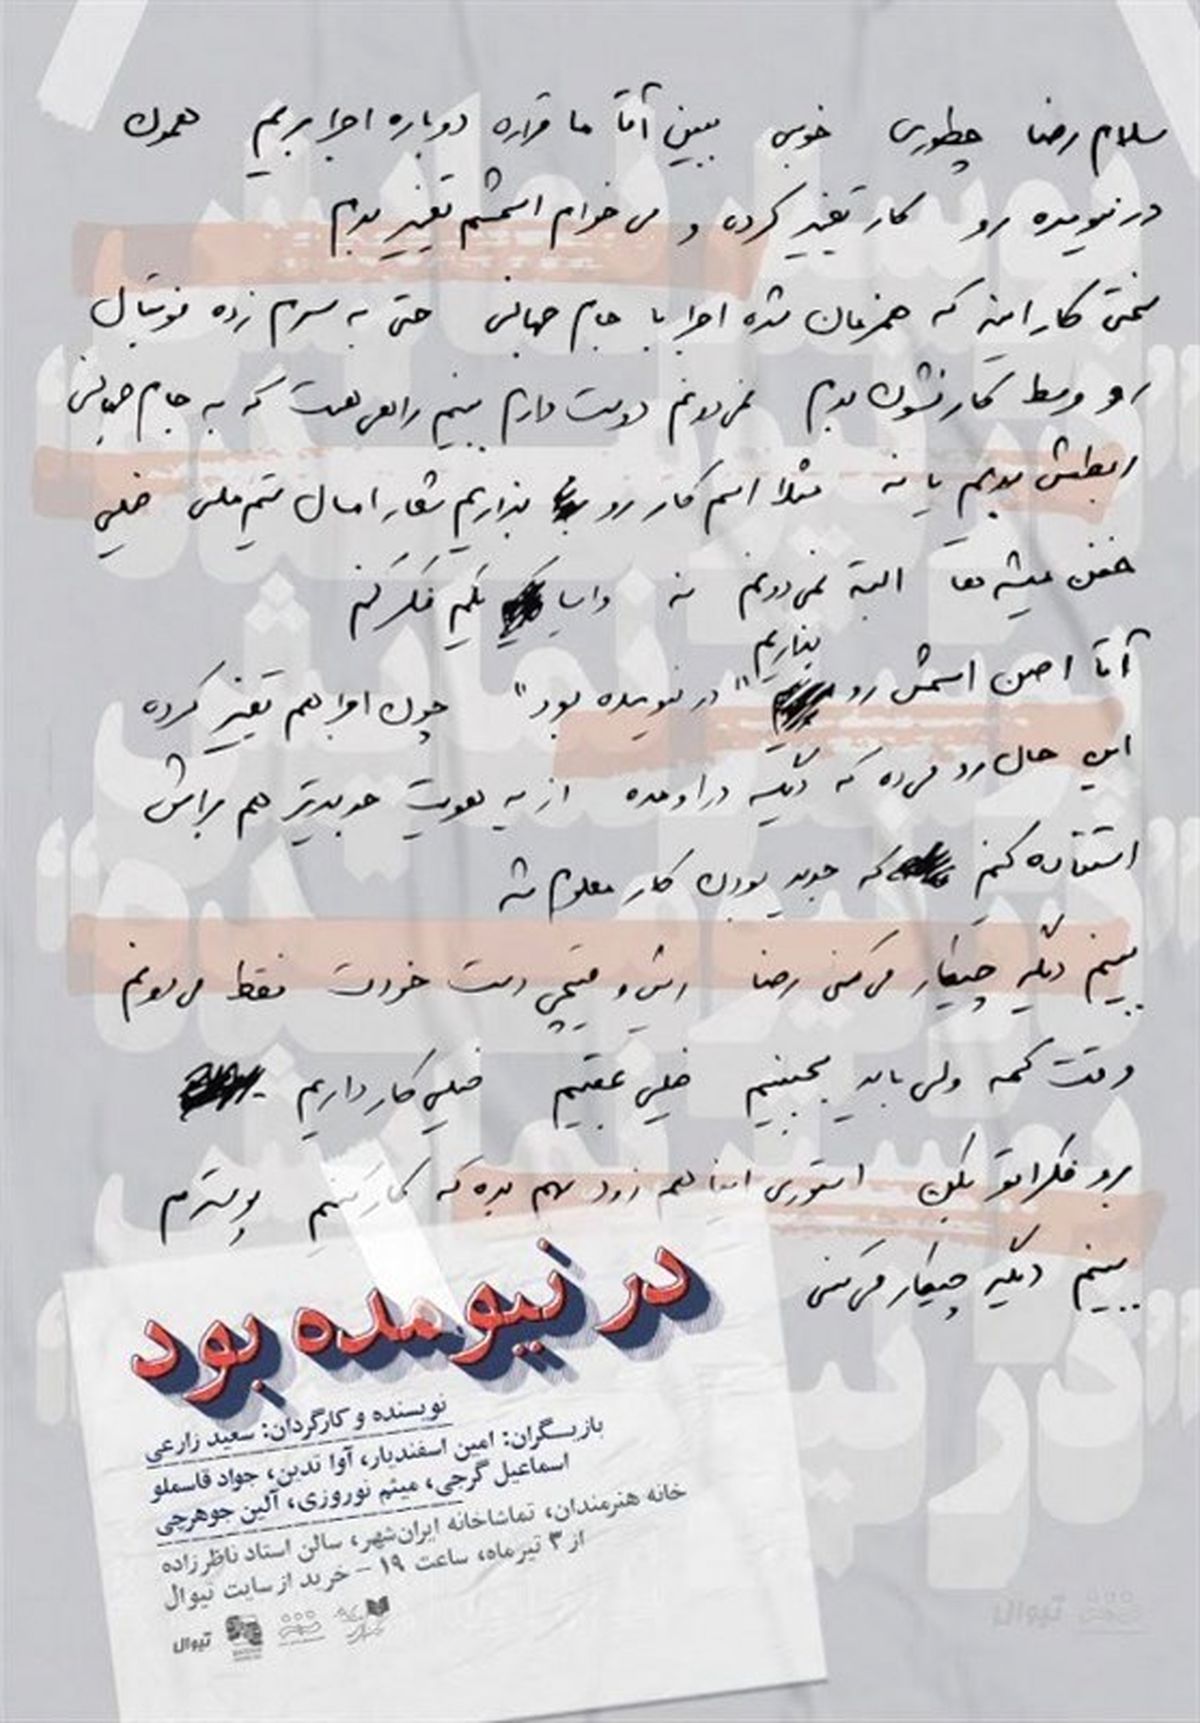 سلام رضا چطوری خوبی ببین آقا ما قراره دوباره اجرا بریم همون
در نیومده رو کار تغییر کرده و می‌خوام اسمشم تغییر بدم
سختی کار اینه که همزمان شده اجرا با جام جهانی حتی به سرم زده فوتبال
رو وسط کار نشون بدم نمی‌دونم دوست دارم ببینم راهی هست که به جام جهانی
ربطش بدیم یا نه مثلا اسم کار رو بذاریم شعار امسال تیم ملی خیلی
خفن میشه ها البته نمی‌دونم نه وایسا بگم فکر کنم
آقا اصن اسمش رو بذاریم "در نیومده بود" چون اجرا هم تغییر کرده
این حال رو می‌ده که دیگه دراومده از یه هویت جدیدتر هم براش
استفاده کنیم که جدید بودن کار معلوم شه
ببینم دیگه چیکار می‌کنی رضا ریش و قیچی دست خودت فقط می‌دونم
وقت کمه ولی باید بجنبیم خیلی عقبیم خیلی کار داریم
برو فکراتو بکن استوری اینا هم زود بهم بده که کار کنیم پوسترم
ببینم دیگه چیکار می‌کنی
در نیومده بود
نویسنده و کارگردان: سعید زارعی
بازیگران: امین اسفندیار، آوا تدین، جواد قاسملو
اسماعیل گرجی، میثم نوروزی، آلین جوهرچی
خانه هنرمندان، تماشاخانه ایران‌شهر، سالن استاد ناظرزاده
از ۳ تیرماه، ساعت ۱۹ - خرید از سایت تیوال
تیوال
تیوال